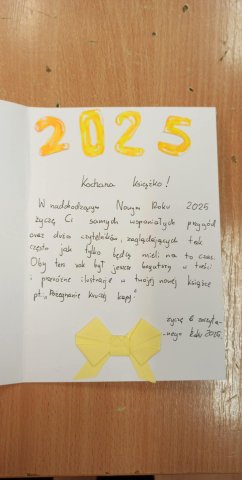 2025
Kochana książko!
W nadchodzącym Nowym Roku 2025
życzę Ci samych wspaniałych przygód
oraz dużo czytelników, zaglądających tak
często jak tylko będą mieli na to czas.
Oby ten rok był jeszcze bogatszy w treści
i przeróżne ilustracje w twojej nowej książce
pt.: „Pożegnanie kruczej kapy"
życzę
-nego Roku 2025.